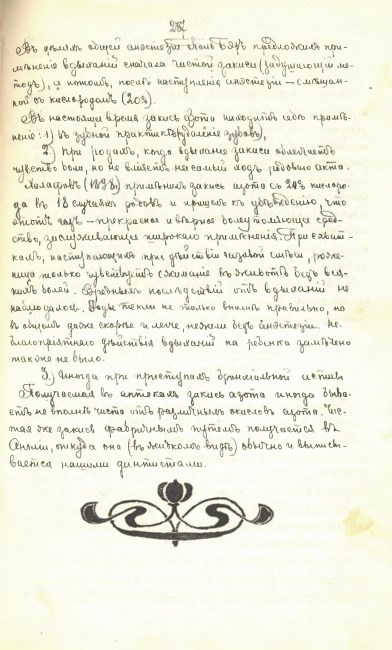 287
Въ цѣляхъ общей анэстезіи Поль Бэръ предложилъ при-
мѣненіе вдыханій сначала чистой закиси (задушающій ме-
тодъ), а потомъ, послѣ наступленія анэстезіи – смѣшан-
ной съ кислородомъ (20%).
Въ настоящее время закись азота находитъ себѣ примѣ-
неніе: 1) въ зубной практикѣ (удаленіе зубовъ),
2) при родахъ, когда вдыханіе закиси облегчаетъ
чувство боли, но не вліяетъ на самый ходъ родового акта.
примѣнялъ закись азота съ 20% кислоро-
да въ 18 случаяхъ родовъ и пришелъ къ убѣжденію, что
этотъ газъ – прекрасное и вѣрное болеутоляющее сред-
ство, заслуживающее широкаго примѣненія. При схват-
кахъ, наступающихъ при дѣйствіи газовой смѣси, роже-
ница только чувствуетъ сжиманіе въ животѣ безъ вся-
кихъ болей. Вредныхъ послѣдствій отъ вдыханій не
наблюдалось. Роды текли не только вполнѣ правильно, но
въ общемъ даже скорѣе и легче, нежели безъ анэстезіи. Не-
благопріятнаго дѣйствія вдыханій на ребенка замѣчено
также не было.
3) Иногда при приступахъ бронхіальной астмы.
Получаемая въ аптекахъ закись азота иногда быва-
етъ не вполнѣ чиста отъ различныхъ окисловъ азота. Чис-
тая же закись фабричнымъ путемъ получается въ
Англіи, откуда она (въ жидкомъ видѣ) обычно и выписы-
вается нашими дантистами.